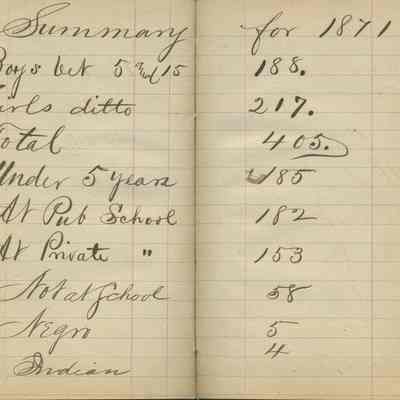 Summary for 1871
Boys bet 5 and 15 188.
Girls ditto 217.
Total 405.
Under 5 years 185
At Pub School 182
At Private " 153
Not at School 58
Negro 5
Indian 4